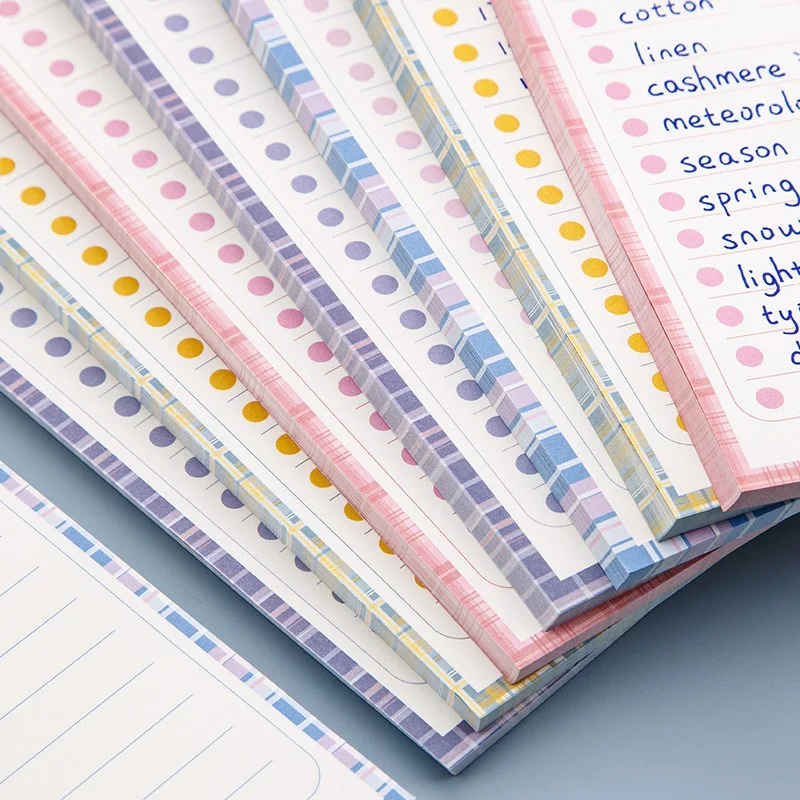 cotton
linen
cashmere
meteorol
season
spring
snow
light
ty
d